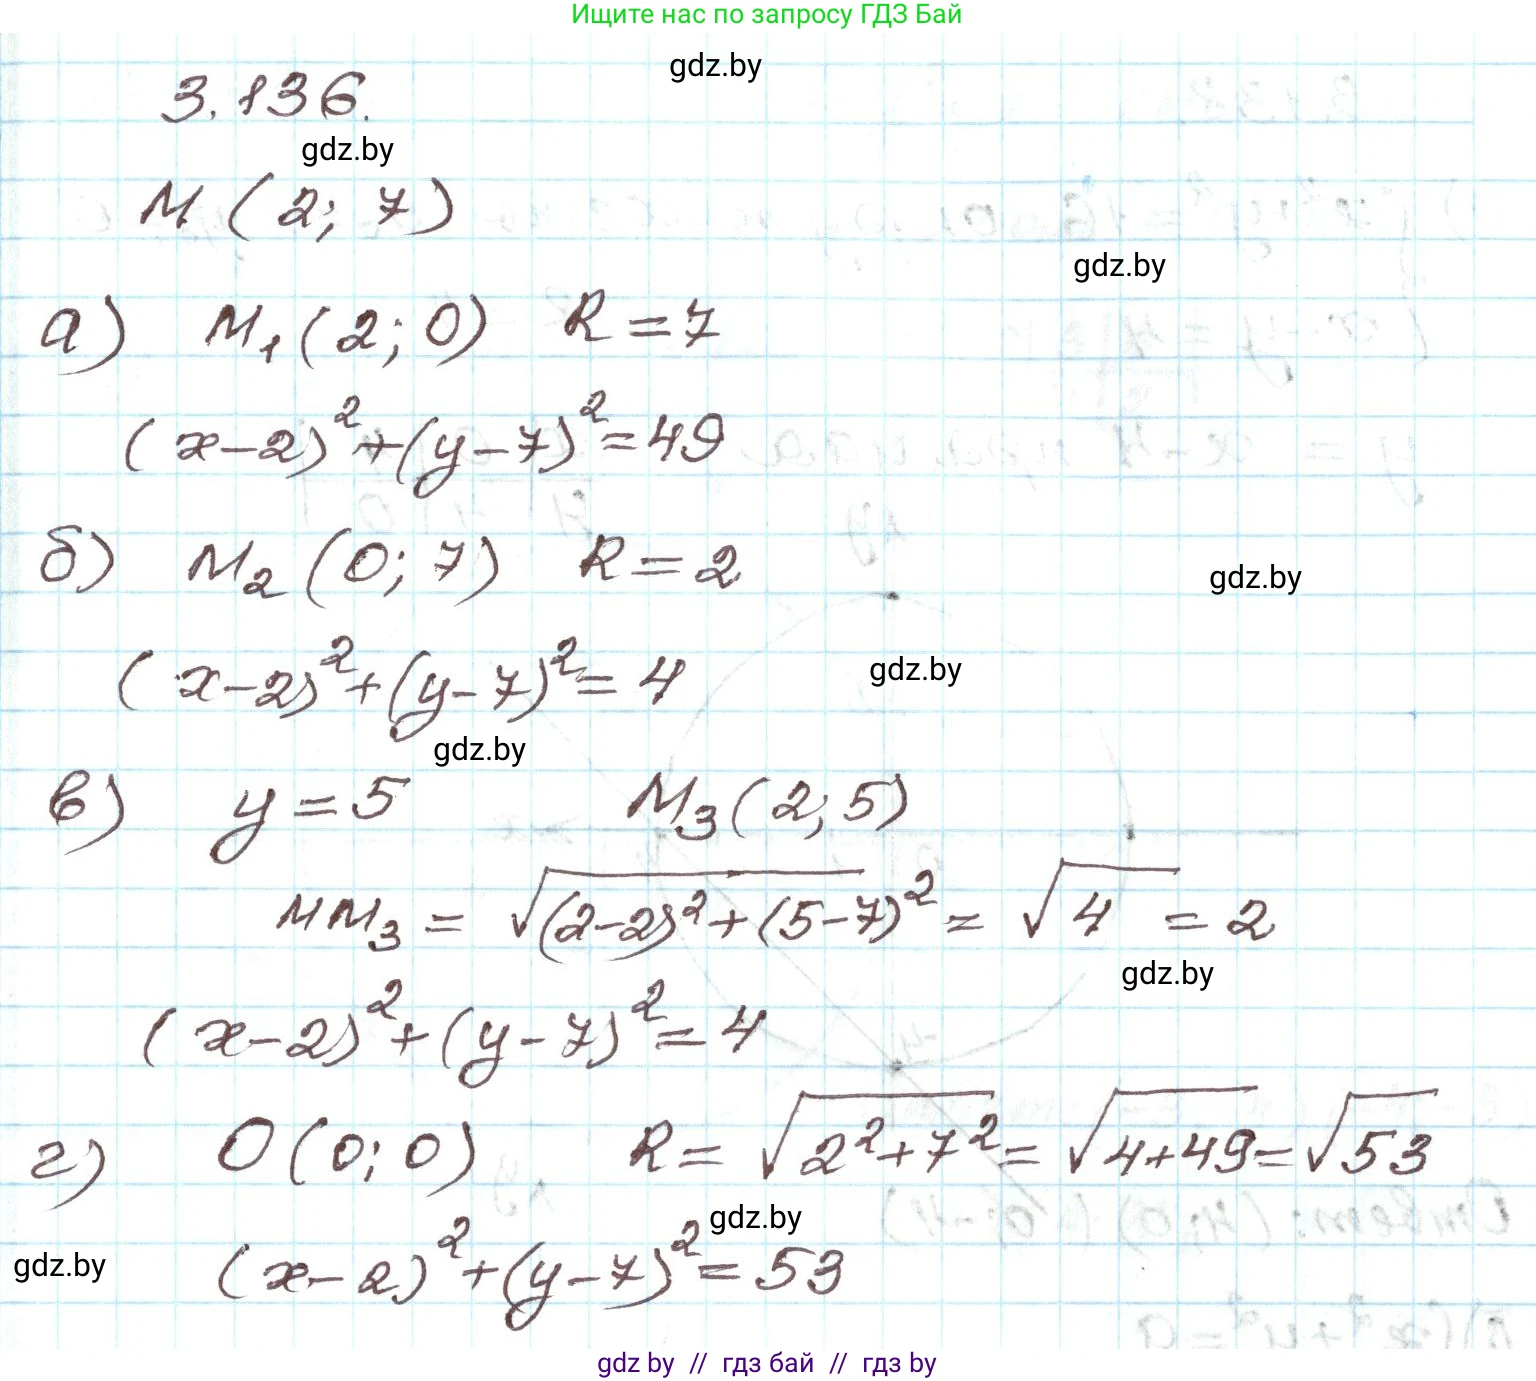 Ищите нас по запросу ГДЗ Бай
gdz.by
3.136.
gdz.by
M (2; 7)
gdz.by
а) M₁ (2; 0) R = 7
(x-2)² + (y-7)² = 49
б) M₂ (0; 7) R = 2
gdz.by
(x-2)² + (y-7)² = 4
gdz.by
gdz.by
в) y = 5 M₃ (2; 5)
MM₃ = √((2-2)² + (5-7)²) = √4 = 2
gdz.by
(x-2)² + (y-7)² = 4
г) O (0; 0) R = √(2²+7²) = √(4+49) = √53
gdz.by
(x-2)² + (y-7)² = 53
gdz.by
gdz by // гдз бай // гдз by